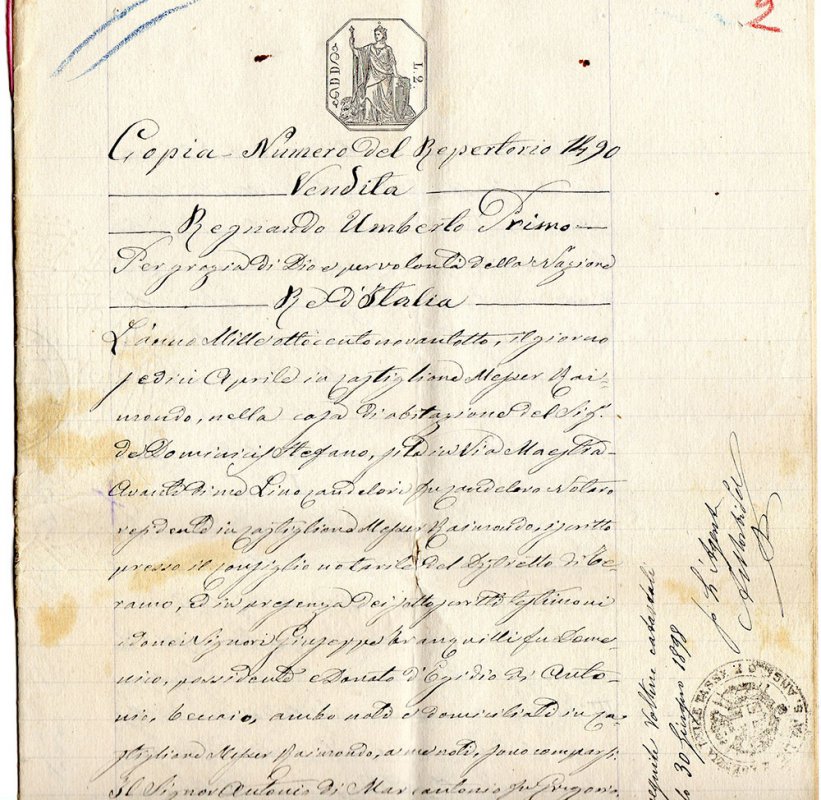 2
L. 2.
Copia - Numero del Repertorio 1490
Vendita
Regnando Umberto Primo
Per grazia di Dio e per volontà della Nazione
Re d'Italia
L'anno Milleottocentonovantotto, il giorno
sedici Aprile in Castiglione Messer Rai-
mondo, nella casa di abitazione del Sig.
De Dominicis Stefano, sita in Via Maestra
Avanti di me Lino Candelori fu Candeloro Notaro
residente in Castiglione Messer Raimondo, iscritto
presso il Consiglio notarile del Distretto di Te-
ramo, ed in presenza dei sottoscritti testimoni
idonei Signori Giuseppe Tranquilli fu Dome-
nico, possidente e Donato d'Egidio di Anto-
nio, beccaio, ambo nati e domiciliati in Ca-
stiglione Messer Raimondo, a me noti, sono comparsi
Il Signor Antonio di Marcantonio fu Gregorio
eseguite Volture catastali
lo 30 Giugno 1898
p L'Agente